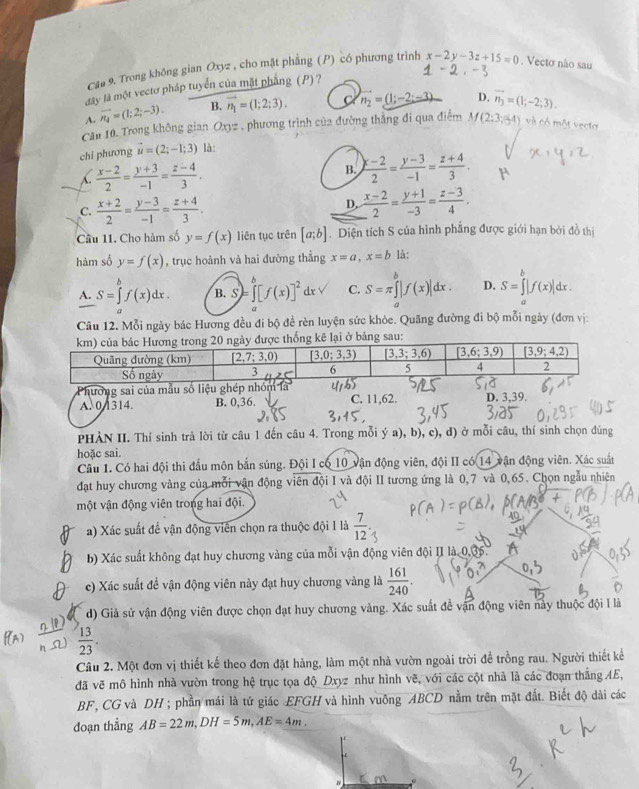 Câu 9. Trong không gian Oxyz , cho mặt phẳng (P) có phương trình x−2y−3z+15=0. Vectơ nào sau
1 - 2 , - 3
đây là một vectơ pháp tuyến của mặt phẳng (P) ?
A. n₄ = (1;2;−3). B. n₁ = (1;2;3). C n₂ = (1;−2;−3) D. n₃ = (1;−2;3).
Câu 10. Trong không gian Oxyz , phương trình của đường thẳng đi qua điểm M(2;3;−4) và có một vectơ
chỉ phương u = (2;−1;3) là:
x, y, z
A. (x−2)/2 = (y+3)/−1 = (z−4)/3. B. (x−2)/2 = (y−3)/−1 = (z+4)/3.
C. (x+2)/2 = (y−3)/−1 = (z+4)/3. D. (x−2)/2 = (y+1)/−3 = (z−3)/4.
Câu 11. Cho hàm số y = f(x) liên tục trên [a;b]. Diện tích S của hình phẳng được giới hạn bởi đồ thị
hàm số y = f(x), trục hoành và hai đường thẳng x = a, x = b là:
A. S = ∫ₐᵇ f(x)dx. B. S = ∫ₐᵇ [f(x)]² dx C. S = π∫ₐᵇ |f(x)|dx. D. S = ∫ₐᵇ |f(x)|dx.
Câu 12. Mỗi ngày bác Hương đều đi bộ để rèn luyện sức khỏe. Quãng đường đi bộ mỗi ngày (đơn vị:
km) của bác Hương trong 20 ngày được thống kê lại ở bảng sau:
Quãng đường (km) [2,7; 3,0) [3,0; 3,3) [3,3; 3,6) [3,6; 3,9) [3,9; 4,2)
Số ngày 3 6 5 4 2
Phương sai của mẫu số liệu ghép nhóm là
4,65 5,25 5,8 6,15
A. 0,1314. B. 0,36. C. 11,62. D. 3,39.
2,85 3,15, 3,45 0,295
PHẦN II. Thí sinh trả lời từ câu 1 đến câu 4. Trong mỗi ý a), b), c), d) ở mỗi câu, thí sinh chọn đúng
hoặc sai.
Câu 1. Có hai đội thi đấu môn bắn súng. Đội I có 10 vận động viên, đội II có 14 vận động viên. Xác suất
đạt huy chương vàng của mỗi vận động viên đội I và đội II tương ứng là 0,7 và 0,65. Chọn ngẫu nhiên
một vận động viên trong hai đội.
24
a) Xác suất để vận động viên chọn ra thuộc đội I là 7/12.
b) Xác suất không đạt huy chương vàng của mỗi vận động viên đội II là 0,35.
0,35
0,3
c) Xác suất để vận động viên này đạt huy chương vàng là 161/240.
d) Giả sử vận động viên được chọn đạt huy chương vàng. Xác suất để vận động viên này thuộc đội I là
13/23.
Câu 2. Một đơn vị thiết kế theo đơn đặt hàng, làm một nhà vườn ngoài trời để trồng rau. Người thiết kế
đã vẽ mô hình nhà vườn trong hệ trục tọa độ Dxyz như hình vẽ, với các cột nhà là các đoạn thẳng AE,
BF, CG và DH ; phần mái là tứ giác EFGH và hình vuông ABCD nằm trên mặt đất. Biết độ dài các
đoạn thẳng AB = 22 m, DH = 5 m, AE = 4 m .